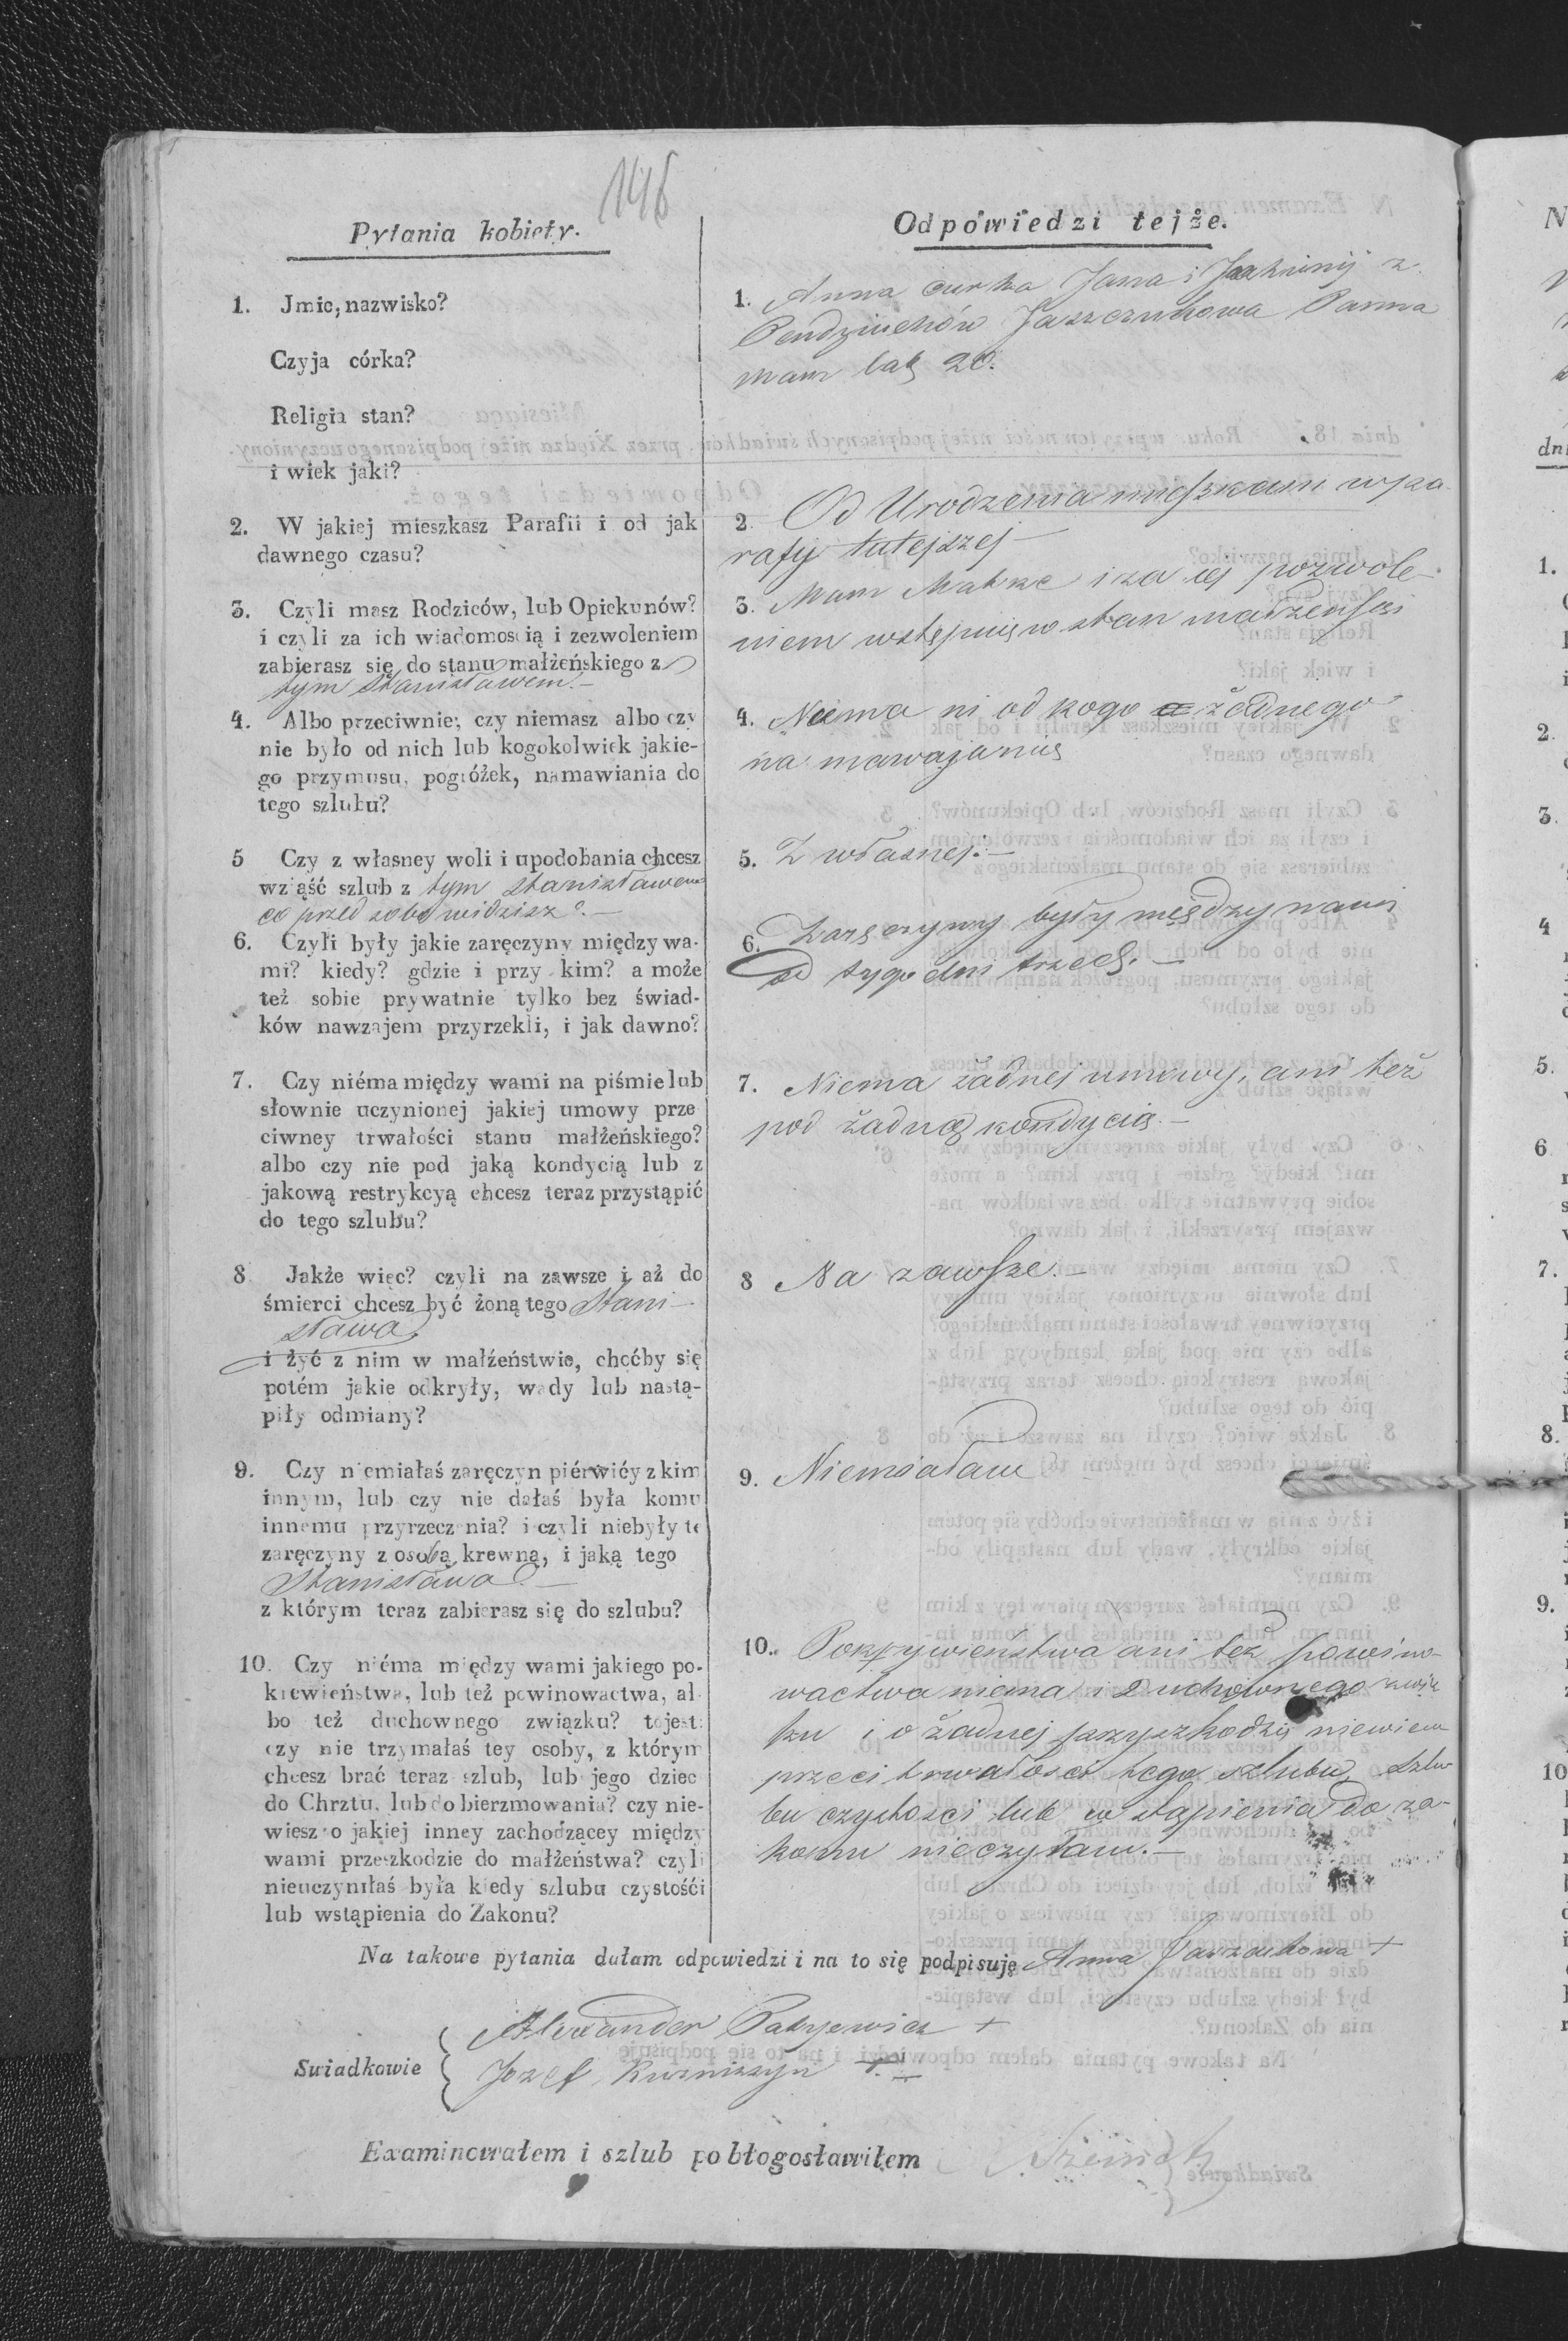 146
Pytania kobiety.
1. Jmie, nazwisko?
Czyja córka?
Religia stan?
i wiek jaki?
2. W jakiej mieszkasz Parafii i od jak
dawnego czasu?
3. Czyli masz Rodziców, lub Opiekunów?
i czyli za ich wiadomością i zezwoleniem
zabierasz się do stanu małżeńskiego z
tym Stanisławem.—
4. Albo przeciwnie; czy niemasz albo czy
nie było od nich lub kogokolwiek jakie-
go przymusu, pogróżek, namawiania do
tego szlubu?
5 Czy z własney woli i upodobania chcesz
wziąść szlub z tym Stanisławem
co przed sobo widzisz?.—
6. Czyli były jakie zaręczyny między wa-
mi? kiedy? gdzie i przy kim? a może
też sobie prywatnie tylko bez świad-
ków nawzajem przyrzekli, i jak dawno?
7. Czy niéma między wami na piśmie lub
słownie uczynionej jakiej umowy prze
ciwney trwałości stanu małżeńskiego?
albo czy nie pod jaką kondycią lub z
jakową restrykcyą chcesz teraz przystąpić
do tego szlubu?
8 Jakże więc? czyli na zawsze i aż do
śmierci chcesz być żoną tego Stani-
sława
i żyć z nim w małżeństwie, choćby się
potém jakie odkryły, wady lub nastą-
piły odmiany?
9. Czy niemiałaś zaręczyn piérwićy z kim
innym, lub czy nie dałaś była komu
innemu przyrzeczenia? i czyli niebyły te
zaręczyny z osobą krewną, i jaką tego
Stanisława?.—
z którym teraz zabierasz się do szlubu?
10. Czy niéma między wami jakiego po-
krewieństwa, lub też powinowactwa, al
bo też duchownego związku? tojest:
czy nie trzymałaś tey osoby, z którym
chcesz brać teraz szlub, lub jego dziec
do Chrztu, lub do bierzmowania? czy nie-
wiesz o jakiej inney zachodzącey między
wami przeszkodzie do małżeństwa? czyli
nieuczyniłaś była kiedy szlubu czystości
lub wstąpienia do Zakonu?
Odpowiedzi tejże.
1. Anna curka Jana i z
Jaszczukowa Panna
mam lat 20.
2. Od Urodzenia mieszkam w pa
rafij tutejszej—
3. Mam Matkze i za iej pozwole-
niem wstępuię w stan
4. Niema ni od kogo żadnego
na
5. Z własnej.—
6. Zaręczyny były między nami
od tygodni trzech.—
7. Niema żadnej umowy, ani też
pod żadną kondycią.—
8 Na zawsze.—
9. Niemiałam
10. Pokrywieństwa ani też powino-
wactwa niema i Duchownego zwią
zku i o żadnej przyszkodzie niewiem
przeci trwałości tego szlubu, Szlu
bu czystości lub wstąpienia do za-
konu nieczyłam.—
Na takowe pytania dałam odpowiedzi i na to się podpisuję Anna Jaszczukowa +
Alexander +
Swiadkowie
Jozef +
Examinowałem i szlub pobłogosławiłem